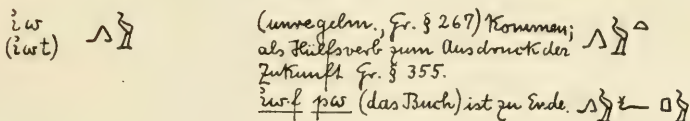 ı͗w 𓂻𓅱 (unregelm., Gr. § 267) Kommen;
(ı͗wt) als Hülfsverb zum Ausdruck der 𓂻𓅱𓏏
Zukunft Gr. § 355.
ı͗w·f pw (das Buch) ist zu Ende. 𓂻𓅱𓆑 𓊪𓅱